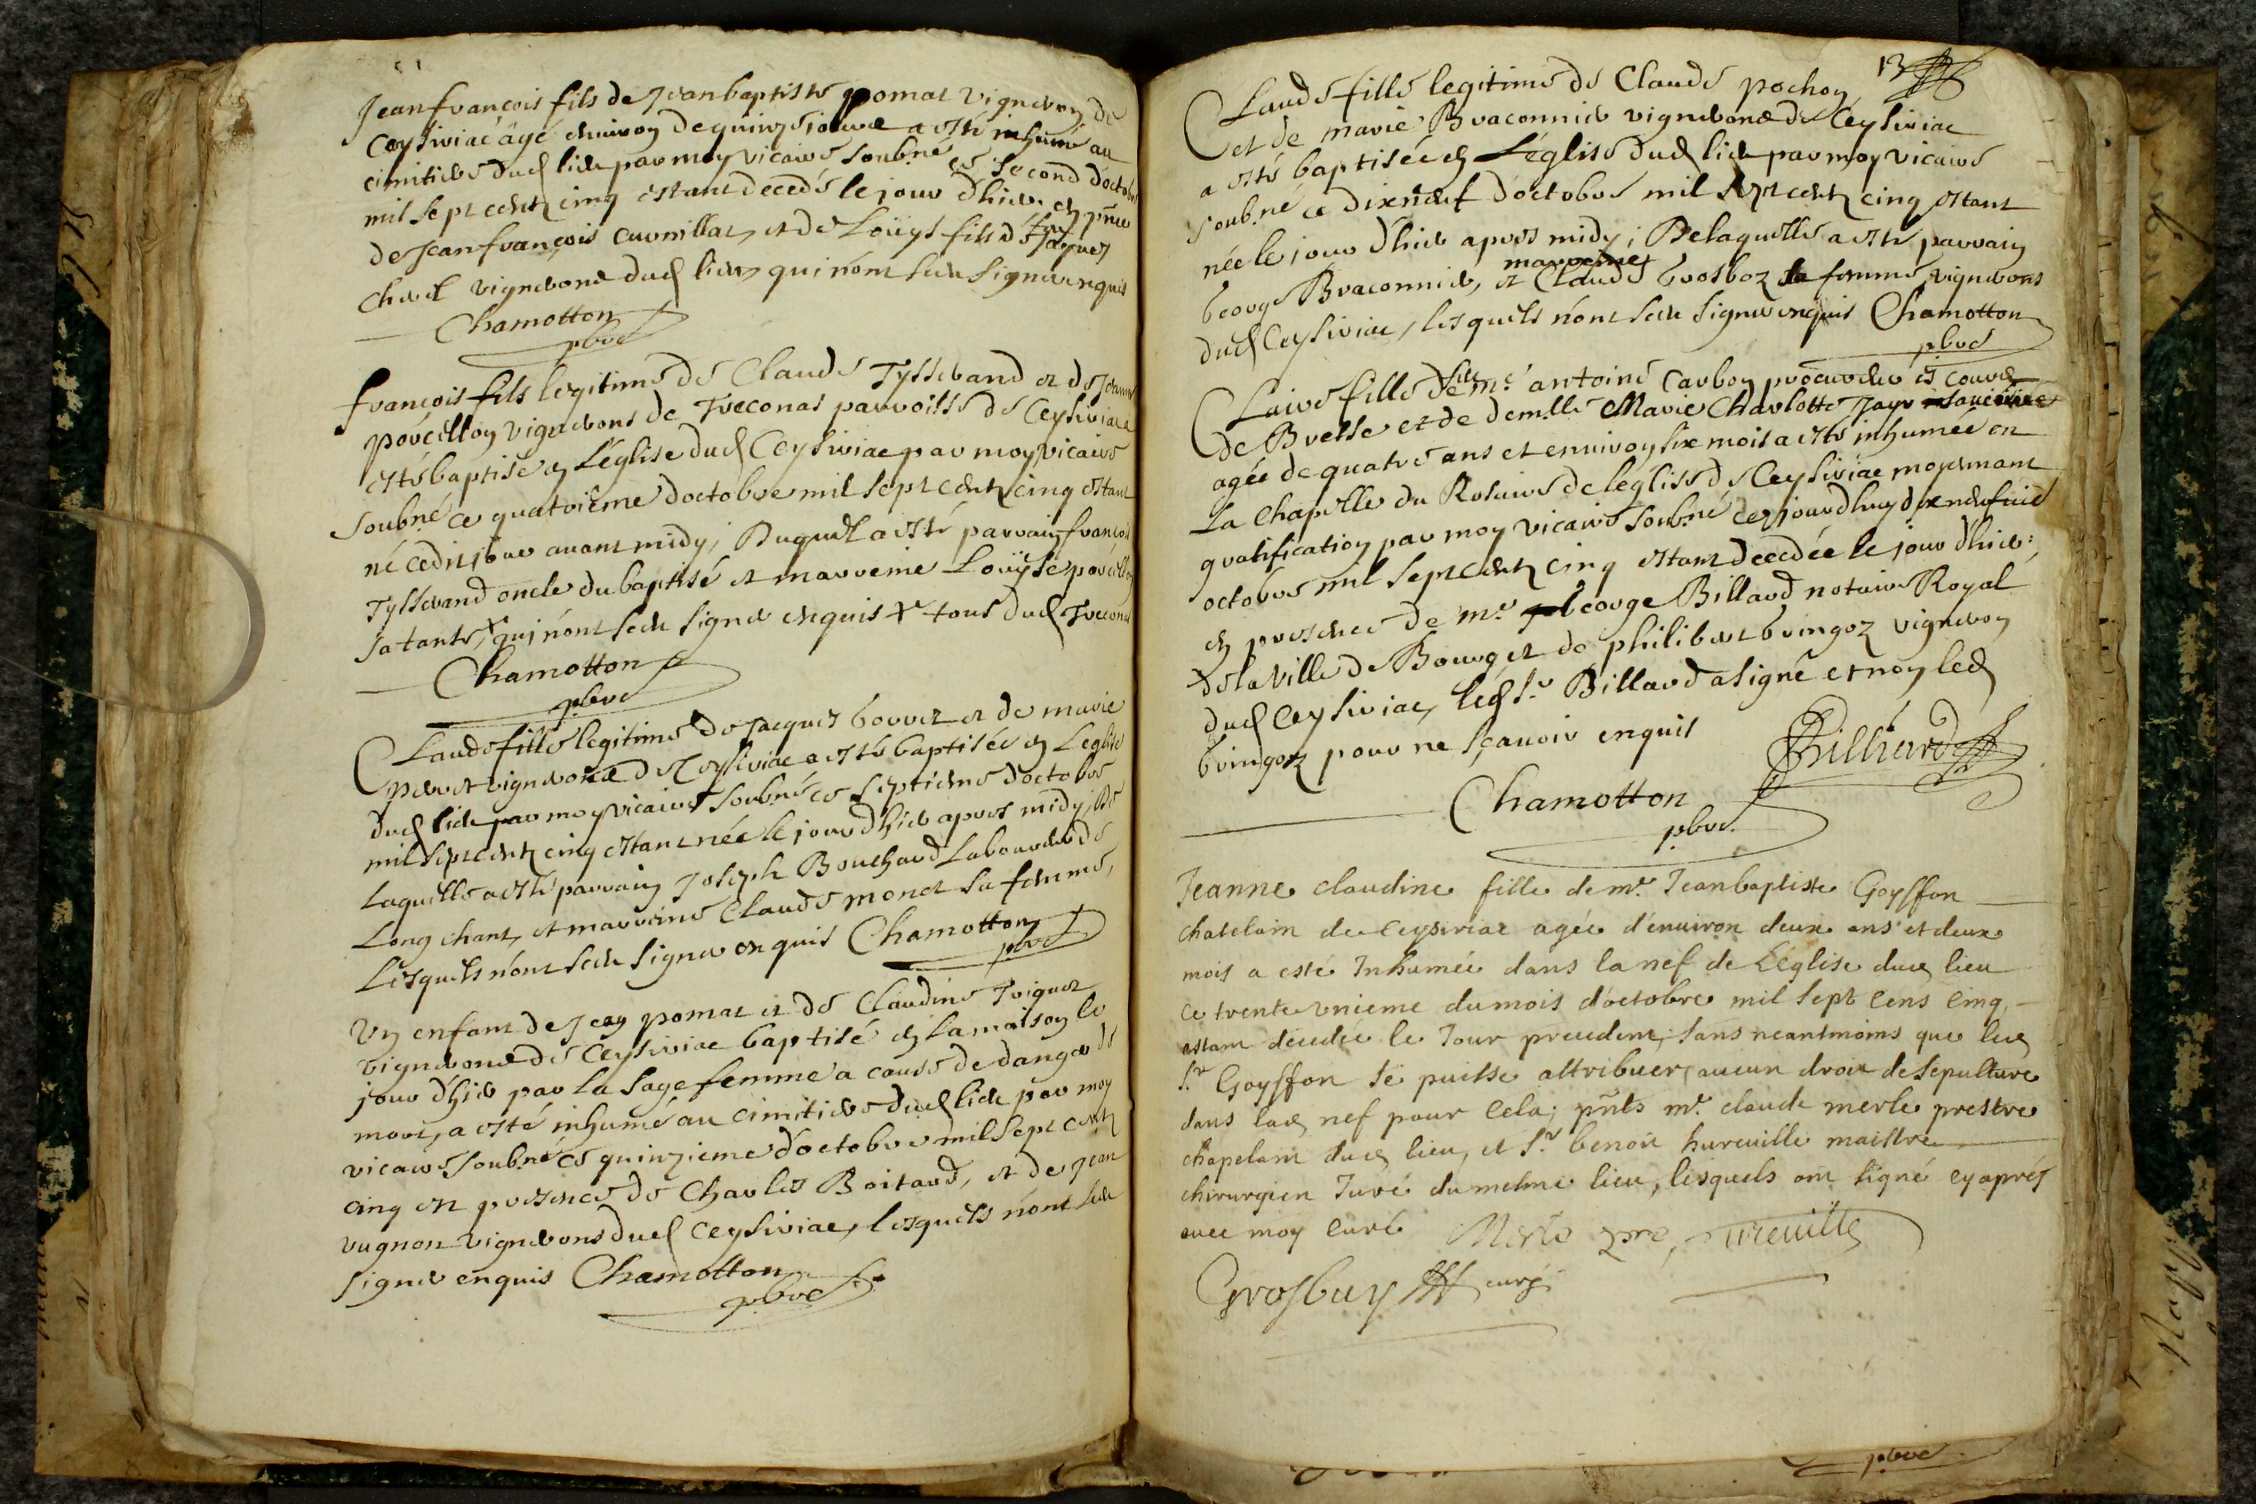 Jeanfrancois fils de Jeanbaptiste pomat vigneron de
Ceysiriac âgé enuiron de quinze jours a esté inhumé au
cimitiere dud lieu par moy vicaire soubné ce second doctobre
mil sept cents cinq estant decedé le jour dhier en pnce
de Jeanfrançois Curnillat, et de Loüys fils de feu Jaques
Chevrel vignerons dud lieu qui n'ont sceu signer enquis
Chamotton
pbre
françois fils legitime de Claude Tysserand et de Jeanne
porcelloy vignerons de Treconas parroisse de Ceysiriac a
esté baptise en L'église dud Ceysiriac par moy vicaire
soubné ce quatrième d'octobre mil sept cents cinq estant
né cedit jour auant midy; Duquel a esté parrain francois
Tysserand oncle du baptisé et marreine Loüyse porcelloy
sa tante, qui n'ont sceu signer enquis + tous dud Treconas
Chamotton
pbre
Claude fille legitime de Jacques borret et de marie
peret vignerons de Ceysiriac a esté baptisée en L'eglise
dud lieu par moy vicaire soubné ce septieme d'octobre
mil sept cents cinq estant née le jour dhier apres midy; De
Laquelle a esté parrain Joseph Bouchard Laboureur de
Long chant, et marreine Claude monet sa femme,
Lesquels n'ont sceu signer enquis Chamotton
pbre
Un enfant de Jean pomat et de Claudine Triquet
vignerons de Ceysiriac baptisé en La maison le
jour d'hier par La sage femme a cause de danger de
mort, a esté inhumé au cimitiere dud lieu par moy
vicaire soubné ce quinzieme d'octobre mil sept cents
cinq en presence de Charles Boitard, et de Jean
vugnon vignerons dud Ceysiriac, lesquels n'ont sceu
signer enquis Chamotton
pbre
13
Claude fille legitime de Claude pochon
et de marie Braconnier vignerons de Ceysiriac
a esté baptisée en L'église dud lieu par moy vicaire
soubné ce dixneuf d'octobre mil sept cents cinq estant
née le jour d'hier apres midy; De laquelle a esté parrain
George Braconnier, et marreine Claude brosboz sa femme, vignerons
dud Ceysiriac, lesquels n'ont sceu signer enquis Chamotton
pbre
Claire fille de feu mre antoine Carbon procureur es cours
de Bresse et de demlle Marie Charlotte Jayr
agée de quatre ans et enuiron six mois a esté inhumée en
La Chapelle du Rosaire de leglise de Ceysiriac moyenant
gratification par moy vicaire soubné cejourdhuy dixneufuieme
octobre mil sept cents cinq estant decedée le jour dhier;
en presence de mr George Billard notaire Royal
de la ville de Bourg et de philibert bringoz vigneron
dud Ceysiriac, led Sr Billard a signé et non led
bringoz pour ne sçauoir enquis
Billiard
Chamotton
pbre
Jeanne claudine fille de mr Jeanbaptiste Goyffon
chatelain de Ceysiriac agée d'enuiron deux ans et deux
mois a esté Inhumée dans la nef de L'Eglise dud lieu
ce trente unieme du mois d'octobre mil sept cens cinq
estant décédée le Jour precedent, sans neantmoins que led
Sr Goyffon se puisse attribuer aucun droit de sepulture
dans lad nef pour cela; pnts mr claude merle prestre
chapelain dud lieu, et Sr benoit hureuille maistre
chirurgien Juré du mesme lieu, lesquels ont signé cyaprés
auec moy curé Merle pre, Hureuille
Grosbuy curé
pbre